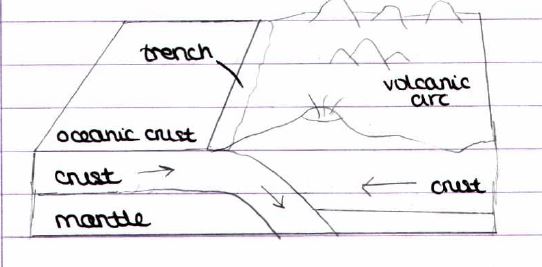 trench
volcanic
arc
oceanic crust
crust
crust
mantle